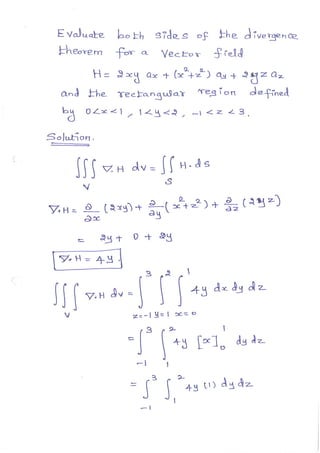 Evaluate both sides of the divergence
theorem for a vector field
H = 2xy ax + (x²+z²) ay + 2yz az
and the rectangular region defined
by 0<x<1, 1<y<2, -1<z<3.
Solution.
∫∫∫ ∇.H dv = ∫∫ H.ds
V S
∇.H = ∂/∂x (2xy) + ∂/∂y (x²+z²) + ∂/∂z (2yz)
= 2y + 0 + 2y
∇.H = 4y.
∫∫∫_V ∇.H dv = ∫_{z=-1}^{3} ∫_{y=1}^{2} ∫_{x=0}^{1} 4y dx dy dz
= ∫_{-1}^{3} ∫_{1}^{2} 4y [x]_0^1 dy dz
= ∫_{-1}^{3} ∫_{1}^{2} 4y (1) dy dz